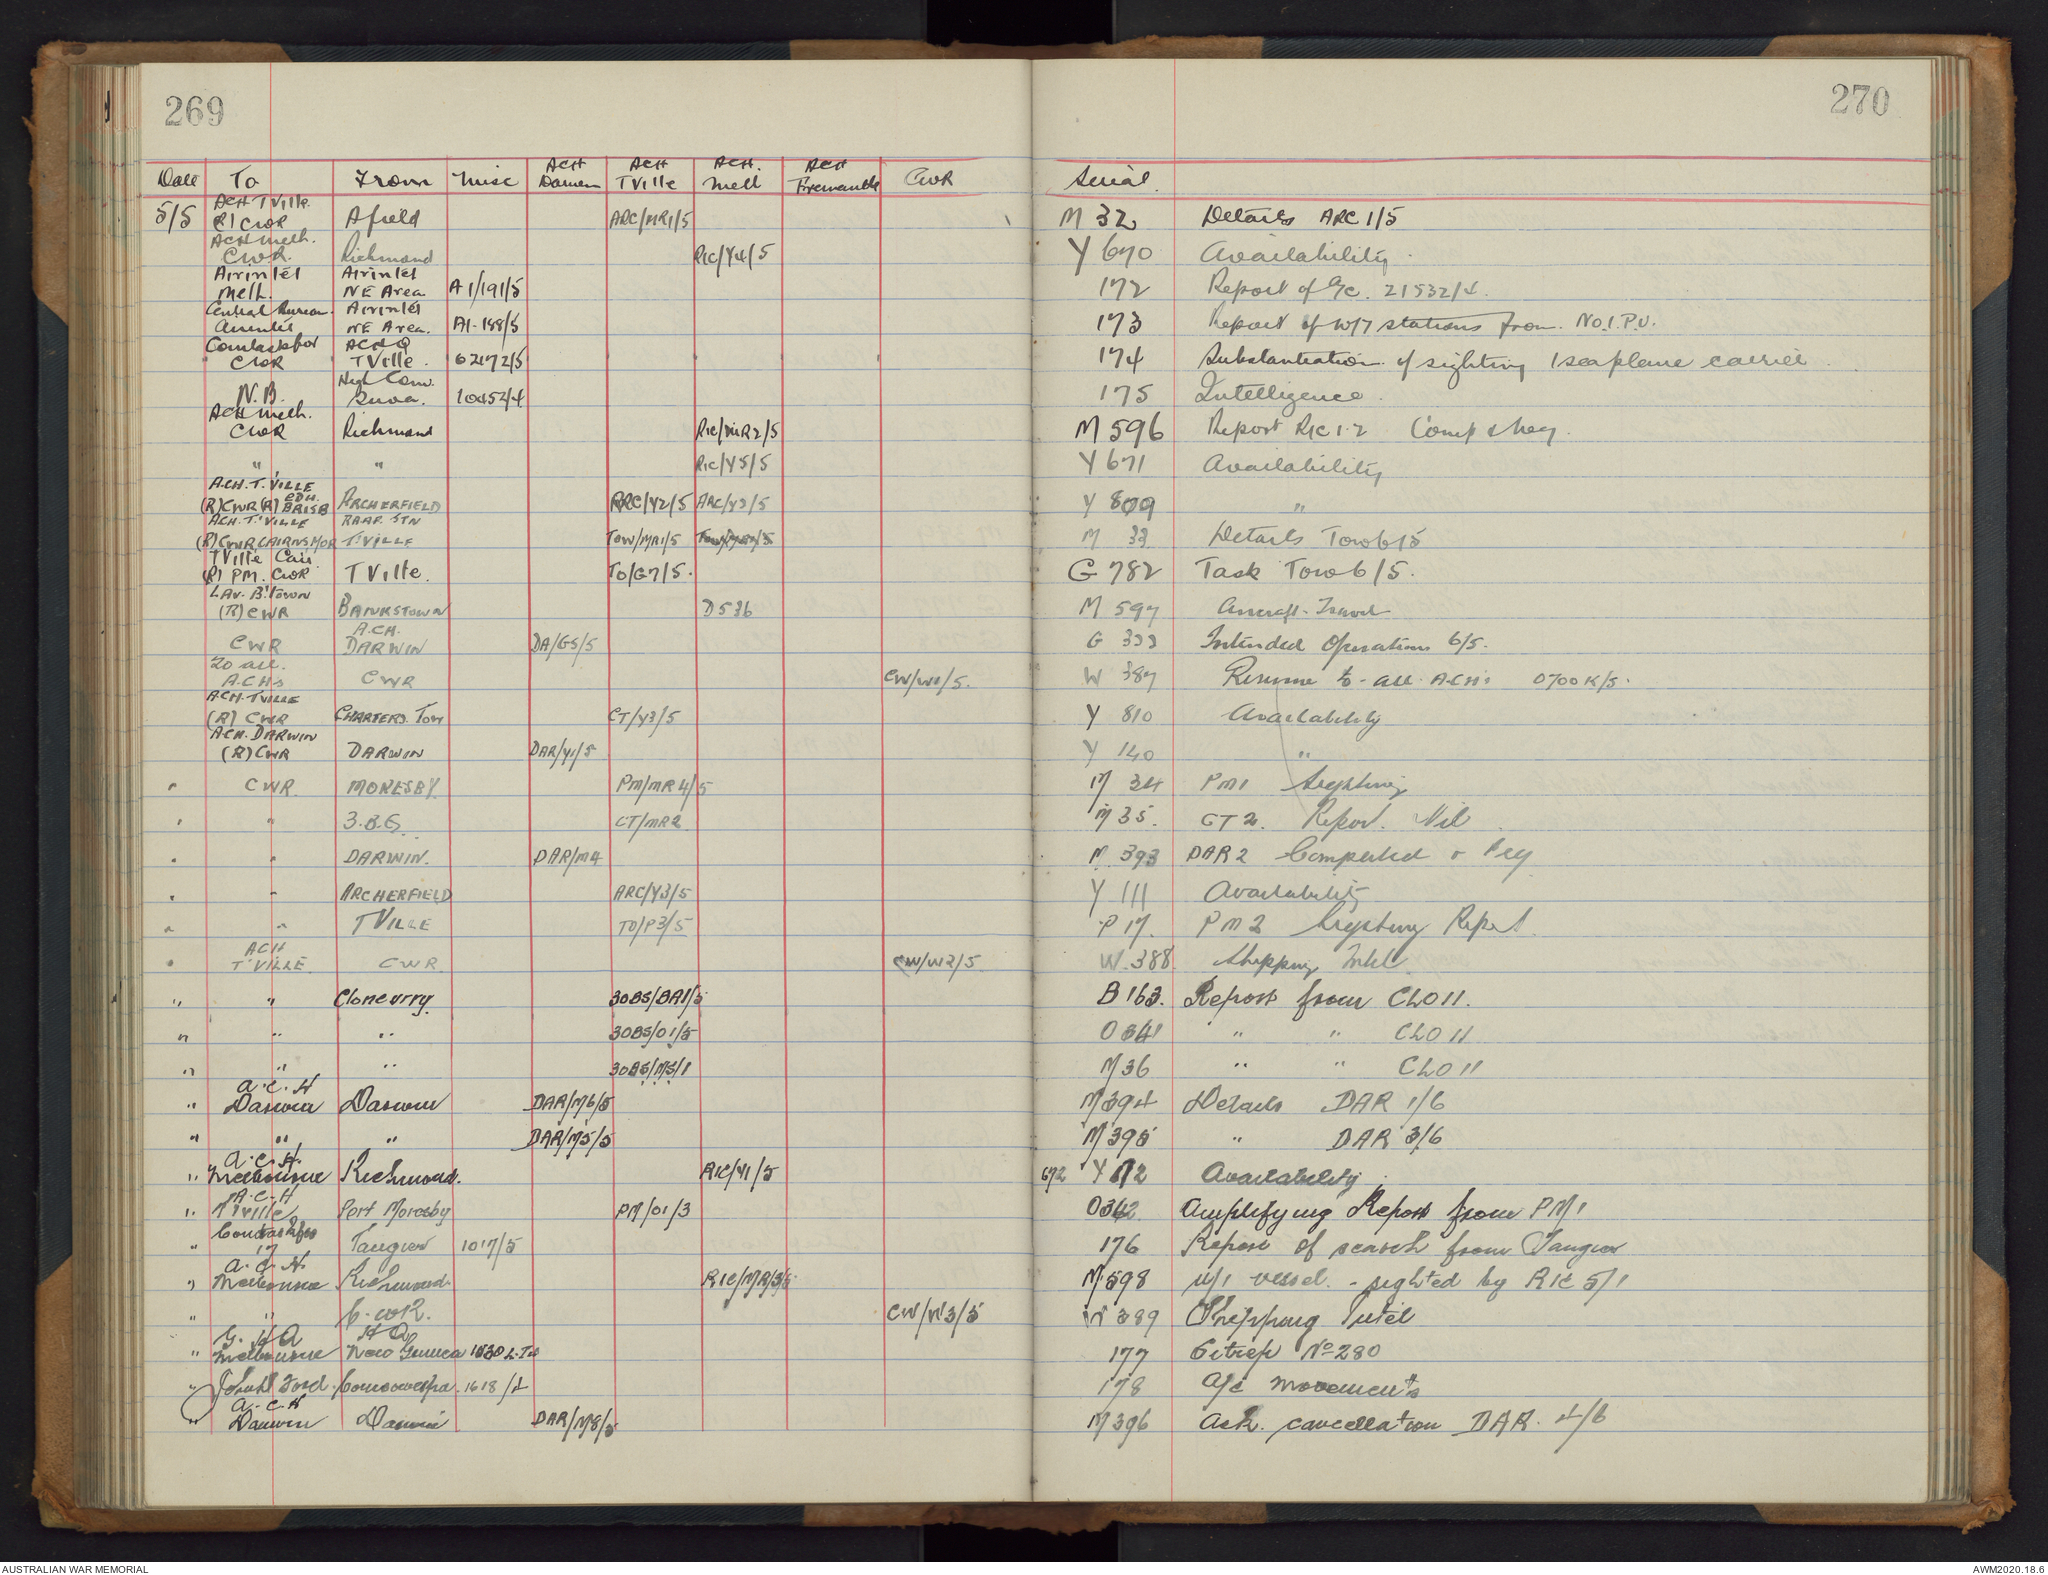 269
Date To From Misc ACH Darwin ACH TVille ACH. Melb ACH Fremantle CWR
ACH TVille.
5/5 R/ CWR Afield ARC/MR1/5
ACH Melb.
CWR. Richmond RIC/Y4/5
Airintel Airintel
Melb. NE Area A1/191/5
Central Bureau. Airintel
NE Area. A1-188/5
ACHQ
CWR TVille. 62172/5
High Com.
N.B. Suva. 10452/4
ACH Melb.
CWR Richmond RIC/MR2/5
" " RIC/Y5/5
ACH. T. VILLE
(R) CWR (R) EDH. BRISB ARCHERFIELD ARC/Y2/5 ARC/Y3/5
ACH. T.'VILLE RAAF. STN
(R) CWR CAIRNS MOR T'VILLE TOW/MR1/5
TVille Cair
(R) PM. CWR TVille. TO/G7/5.
LAV. B'TOWN
(R) CWR BANKSTOWN D536
A.CH.
CWR DARWIN DA/G5/5
To all.
A.CHs CWR CW/W1/5.
ACH. TVILLE
(R) CWR CHARTERS. Tow CT/Y3/5
ACH. DARWIN
(R) CWR DARWIN DAR/Y1/5
" CWR MORESBY. PM/MR4/5
" " 3.B.G. CT/MR2
" " DARWIN. DAR/M4
" " ARCHERFIELD ARC/Y3/5
" " TVILLE TO/P3/5
ACH
" T'VILLE CWR CW/W2/5
" " Cloncurry. 30BS/BA1/5
" " " 30BS/01/5
" " " 30BS/M5/1
A.C.H
" Darwin Darwin DAR/M6/5
" " " DAR/M5/5
A.C.H.
" Melbourne Richmond. RIC/Y1/5
A.C.H
" TVille Port Moresby PM/01/3
" 17 Tangier 1017/5
A.C.H.
" Melbourne Richmond. RIC/MR/3/5
" " C.WR. CW/W3/5
G.HQ HQ
" Melbourne New Guinea 1030
" 1618/4
A.C.H
" Darwin Darwin DAR/M8/5
270
Serial.
M 32 Details ARC 1/5
Y 670 Availability.
172 Report of A/c. 21532/4.
173 Report of W/T stations from. No.1.P.U.
174 Substantiation of sighting 1 seaplane carrier
175 Intelligence.
M 596 Report RIC 1-2 Comp & Neg.
Y 671 Availability
Y 809 "
M 33 Details Tow 6/5
G 782 Task Tow 6/5.
M 597 Aircraft Travel
G 333 Intended Operations 6/5.
W 387 Resume to all A.CH's 0700K/5.
Y 810 Availability
Y 140 "
M 34 PM1 Sighting
M 35. CT 2. Report. Nil
M. 393 DAR 2 Completed & Neg
Y 111 Availability
P 17. PM2 Sighting Report.
W. 388 Shipping Intel.
B 163. Report from CLO 11.
O 341 " " CLO 11
M 36 " " CLO 11
M 394 Details DAR 1/6
M 395 " DAR 3/6
672 Y 112 Availability.
O 342. Amplifying Report from PM1
176 Report of search from Tangier
M 598 M/V vessel. - sighted by RIC 5/1
W 389 Shipping Intel
177 Sitrep No 280
178 A/c movements
M 396 Ack. cancellation DAR. 4/6
AUSTRALIAN WAR MEMORIAL
AWM2020.18.6